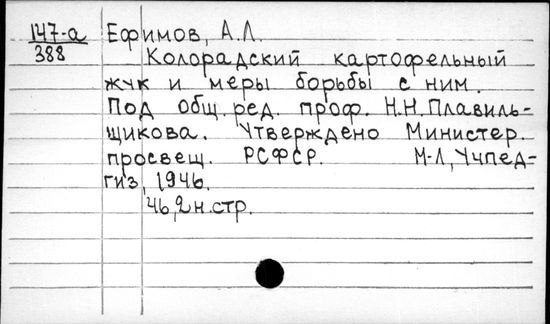 147-а Ефимов, А.Л.
388 Колорадский картофельный
жук и меры борьбы с ним.
Под общ. ред. проф. Н.Н. Плавиль-
щикова. Утверждено Министер.
просвещ. РСФСР. М-Л, Учпед-
гиз, 1946.
46, 2 н. стр.